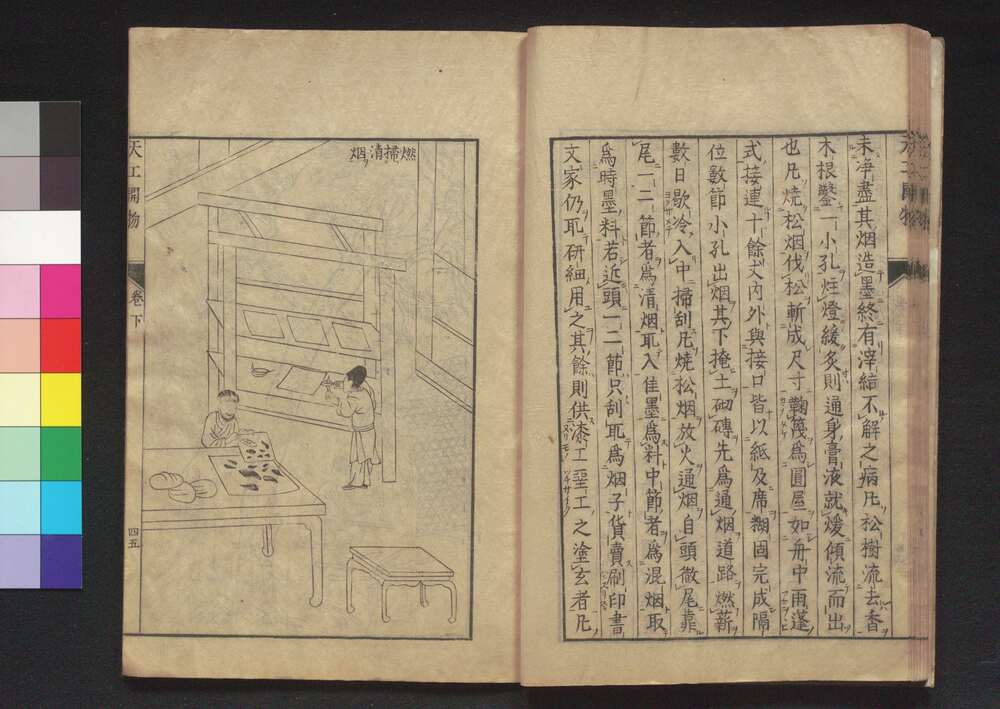 未凈盡其烟造墨終有滓結不解之病凡松樹流去香
木根鑿一小孔炷燈緩炙則通身膏液就煖傾流而出
也凡燒松烟伐松斬成尺寸鞠篾為圓屋如舟中雨蓬
式接連十餘丈內外與接口皆以紙及席糊固完成隔
位數節小孔出烟其下掩土砌磚先為通烟道路燃薪
數日歇冷入中掃刮凡燒松烟放火通烟自頭徹尾靠
尾一二節者為清烟取入佳墨為料中節者為混烟取
為時墨料若近頭一二節只刮取為烟子貨賣刷印書
文家仍取研細用之其餘則供漆工堊工之塗玄者凡
燃掃清烟
天工開物
卷下
四五